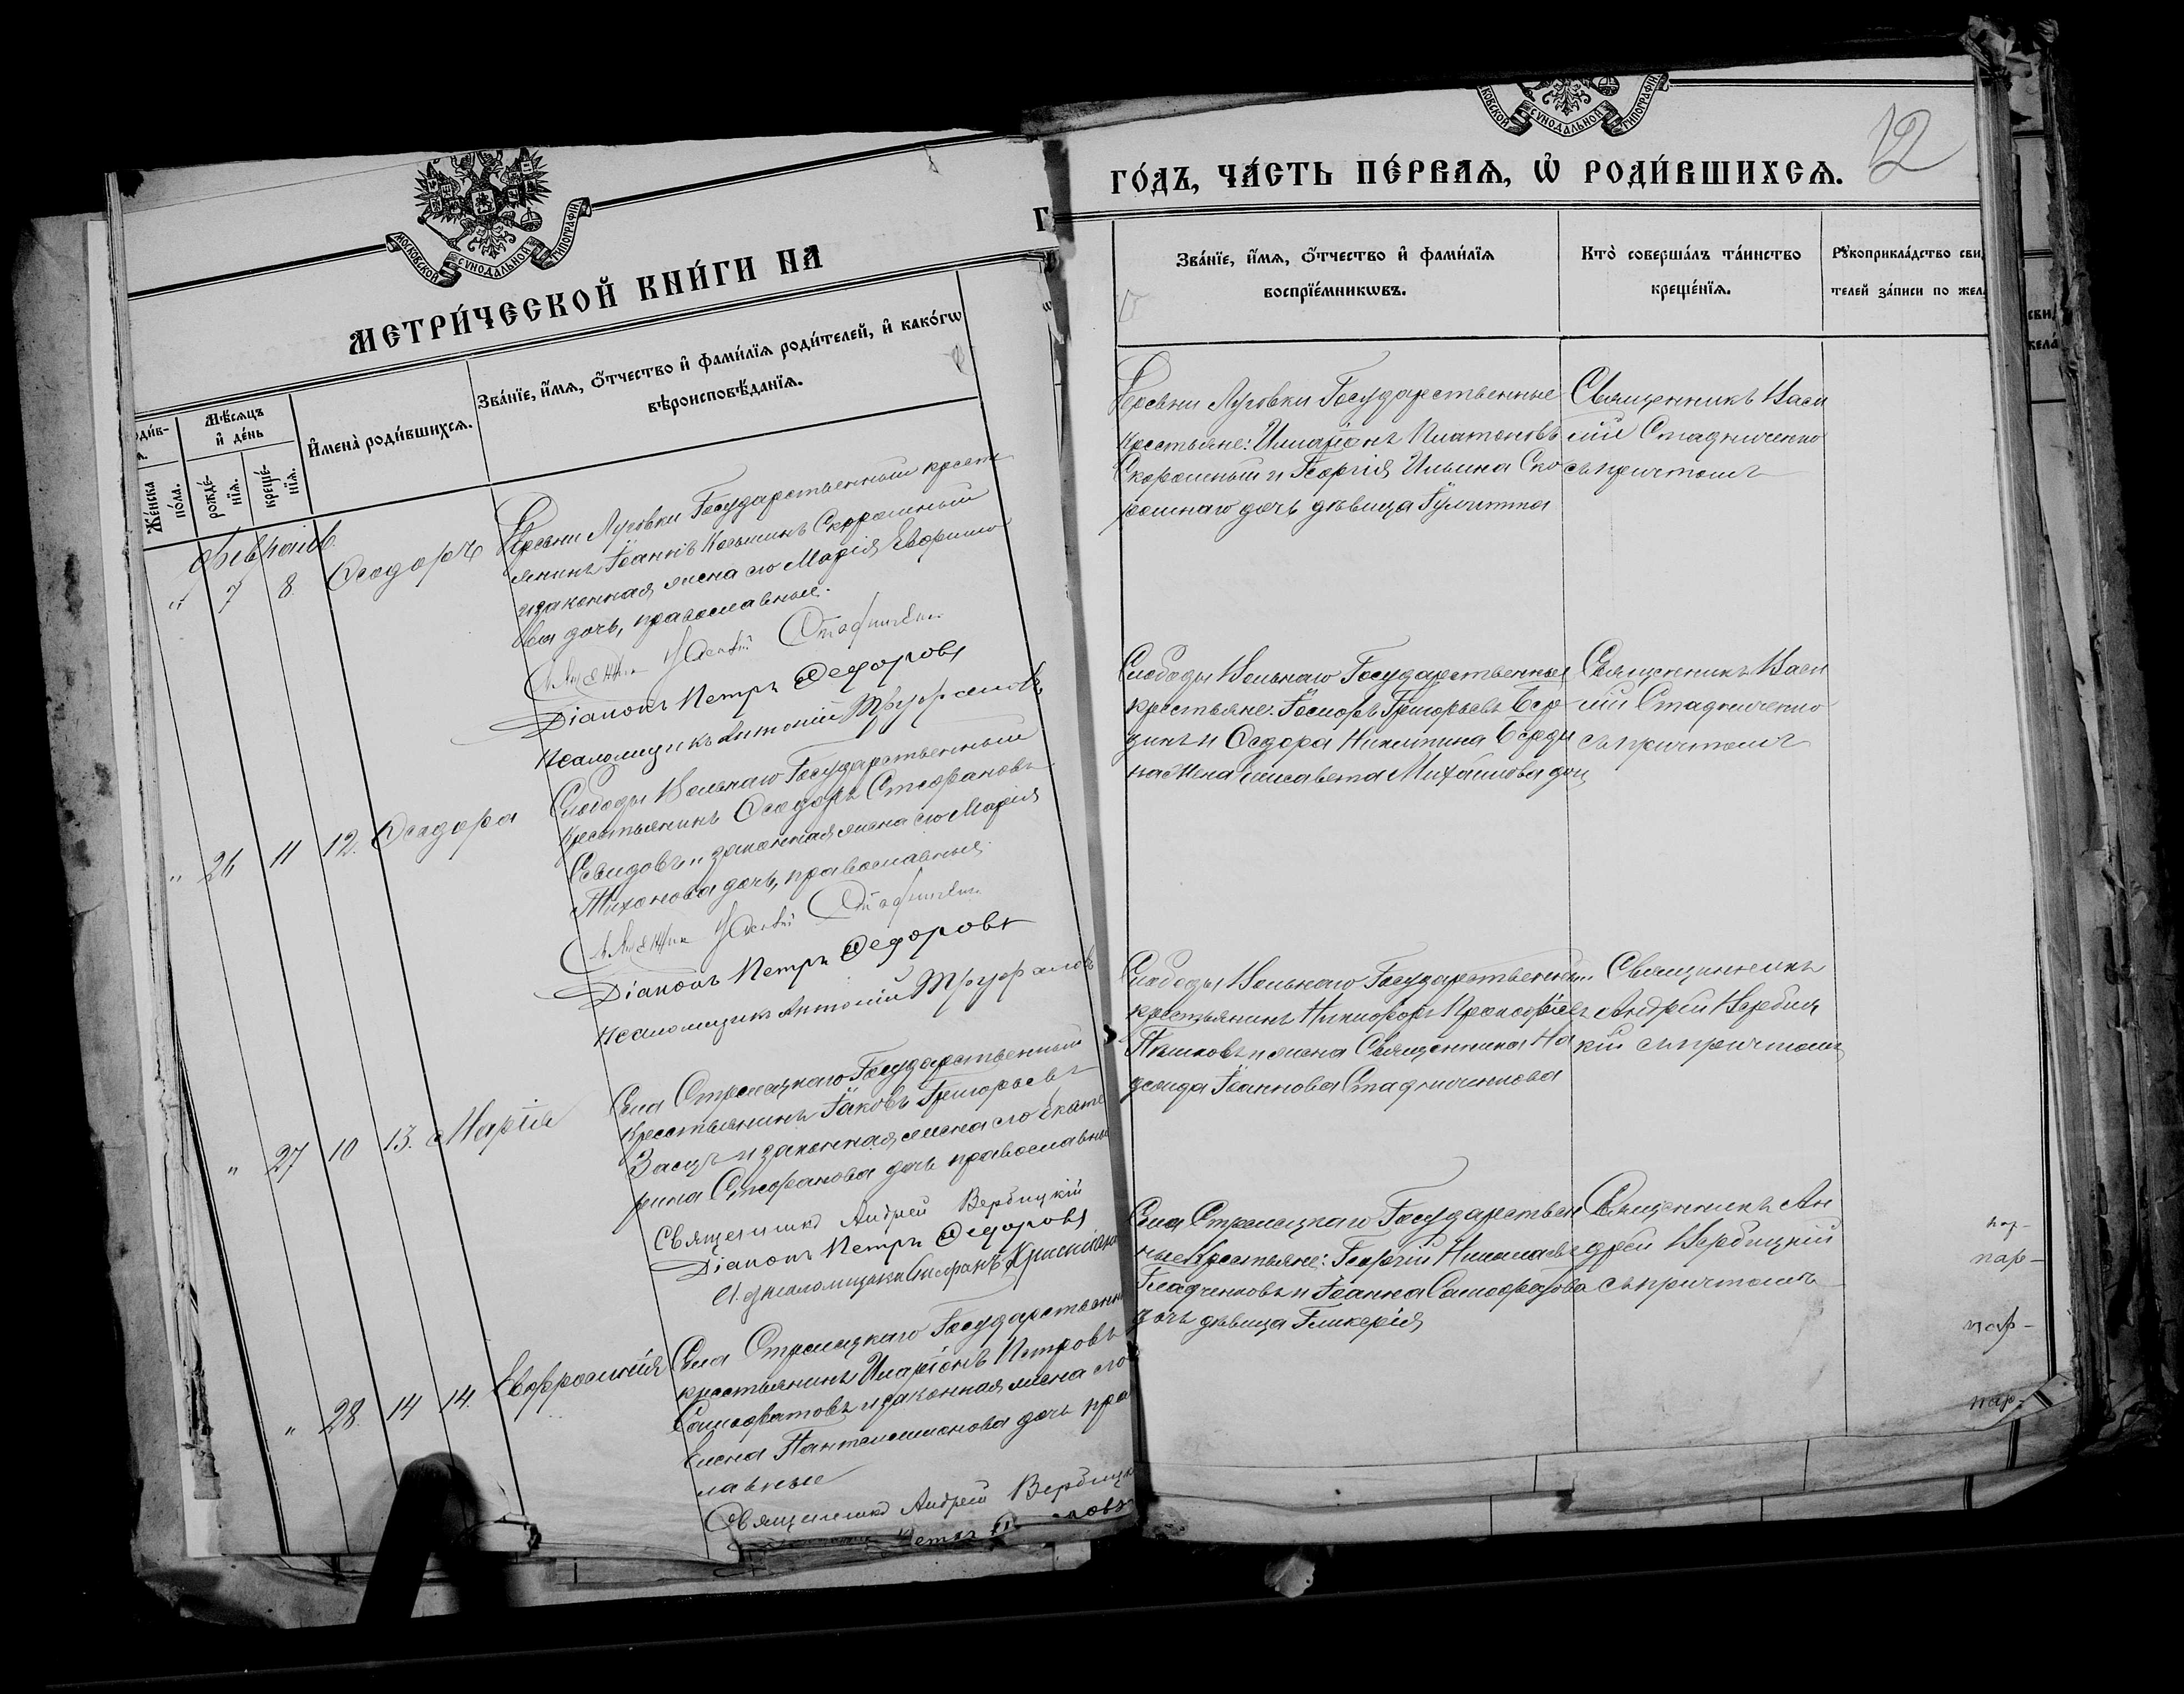 МОСКОВСКОЙ СѴНОДАЛЬНОЙ ТИПОГРАФІИ
МЕТРИ́ЧЕСКОЙ КНИ́ГИ НА
Же́нска по́ла.
Мѣ́сѧцъ и҆ де́нь
рожде́нїѧ.
креще́нїѧ.
И҆мена̀ роди́вшихсѧ.
Зва́нїе, и҆́мѧ, ѻ҆́тчество и҆ фами́лїѧ роди́телей, и҆ како́гѡ
вѣроисповѣ́данїѧ.
Февраль
" 7 8. Ѳеодоръ
Деревни Луговки Государственный крестья
янинъ Іоаннъ Козьминъ Скорошный
и законная жена его Марія Евфимо
ва дочь, православные.
Священникъ Василій Стадниченко
Діаконъ Петръ Ѳедоровъ
Псаломщикъ Антоній Труфановъ
" 26 11 12. Ѳеодора
Слободы Вольнаго Государственный
крестьянинъ Ѳеодоръ Стефановъ
и законная жена его Марія
Тихонова дочь, православные.
Священникъ Василій Стадниченко
Діаконъ Петръ Ѳедоровъ
Псаломщикъ Антоній Труфановъ
" 27 10 13. Марія
Села Стрелецкаго Государственный
крестьянинъ Іаковъ Григорьевъ
Заецъ и законная жена его Екате
рина Стефанова дочь православные
Священникъ Андрей Вербицкій
Діаконъ Петръ Ѳедоровъ
И. д. псаломщика Стефанъ
" 28. 14 14. Евфросинія
Села Стрелецкаго Государственный
крестьянинъ Иларіонъ Петровъ
Самофатовъ и законная жена его
Елена Пантелеимонова дочь пра
лавные
Священникъ Андрей Вербицк
Петръ
МОСКОВСКОЙ СѴНОДАЛЬНОЙ ТИПОГРАФІИ
12
ГО́ДЪ, ЧА́СТЬ ПЕ́РВАѦ, Ѡ҆ РОДИ́ВШИХСѦ.
Зва́нїе, и҆́мѧ, ѻ҆́тчество и҆ фами́лїѧ
воспрїе́мникѡвъ.
Кто̀ соверша́лъ та́инство
креще́нїѧ.
Рꙋкоприкла́дство сви
телей за́писи по жел
Деревни Луговки Государственные
крестьяне: Иларіонъ Платоновъ
Скорошный и Георгія Ильина Ско
рошнаго дочь дѣвица Іулитта
Священникъ Васи
лій Стадниченко
съ причтомъ
Слободы Вольнаго Государственные
крестьяне: Іосифъ Григорьевъ Бер
динъ и Ѳедора Никитина Берди
на жена Елисавета Михайлова доч
Священникъ Васи
лій Стадниченко
съ причтомъ
Слободы Вольнаго Государственный
крестьянинъ Никифоръ Прокофіевъ
и жена Священника На
дежда Іоаннова Стадниченкова
Священникъ
Андрей Вербиц
кій съ причтомъ
Села Стрелецкаго Государствен
ные крестьяне: Георгій Николаевъ
Гладченковъ и Іоанна Самофатова
дочь дѣвица Гликерія
Священникъ Ан
дрей Вербицкій
съ причтомъ
пар-
пар-
пар-